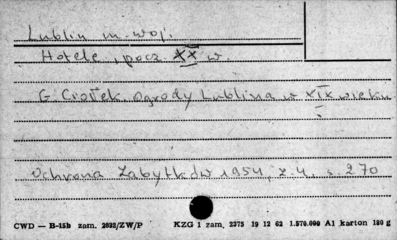 Lublin m. woj.
Hotele, pocz XX w.
G. Ciołek Ogrody Lublina w XIX wieku
Ochrona Zabytków 1954, z. 4, s. 270
CWD — B-15b zam. 2632/ZW/P KZG 1 zam. 2375 19 12 62 1.570.000 A1 karton 180 g